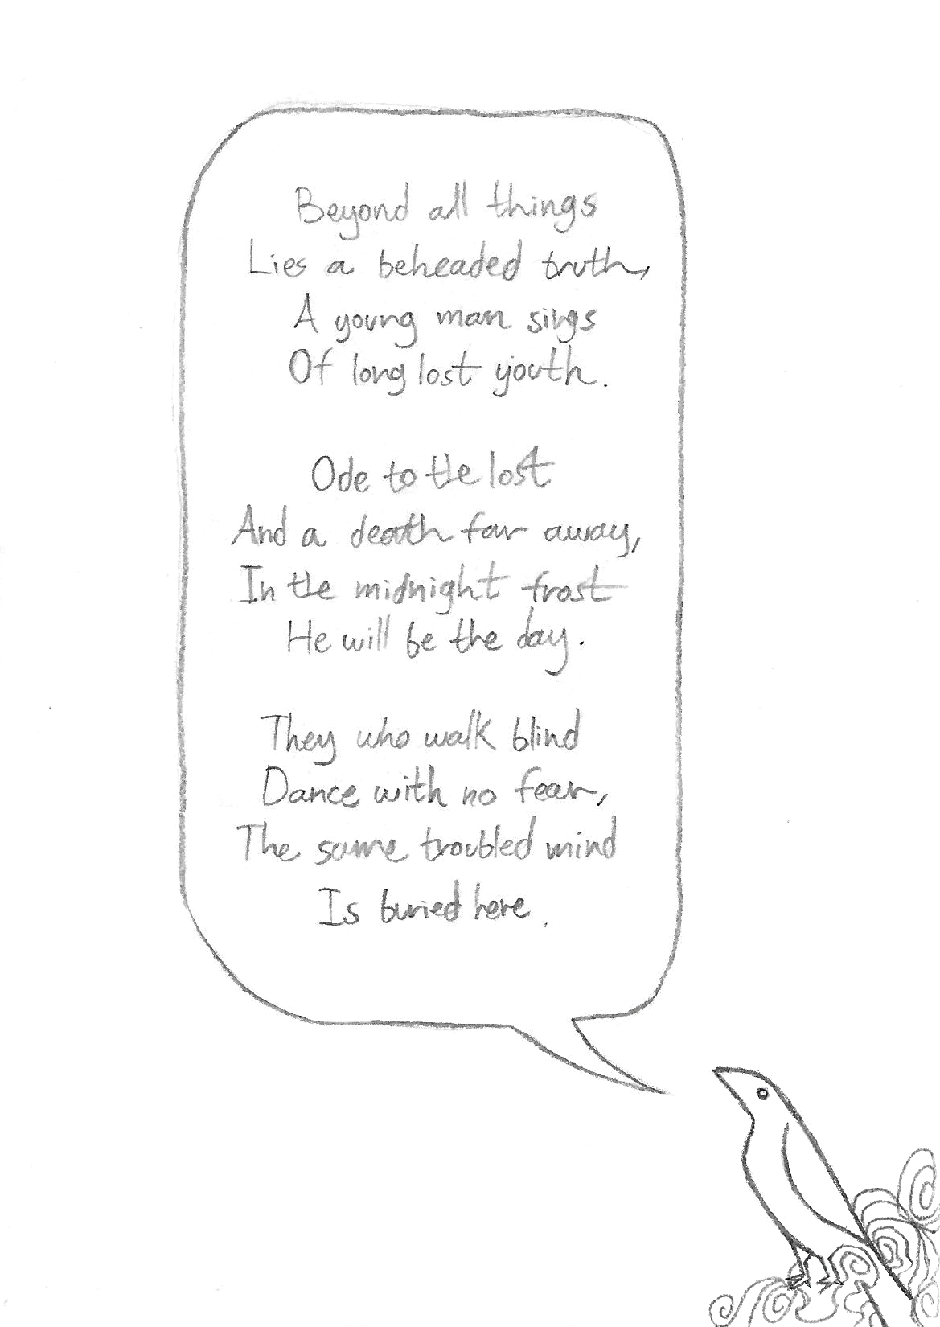 Beyond all things
Lies a beheaded truth,
A young man sings
Of long lost youth.
Ode to the lost
And a death far away,
In the midnight frost
He will be the day.
They who walk blind
Dance with no fear,
The same troubled mind
Is buried here.